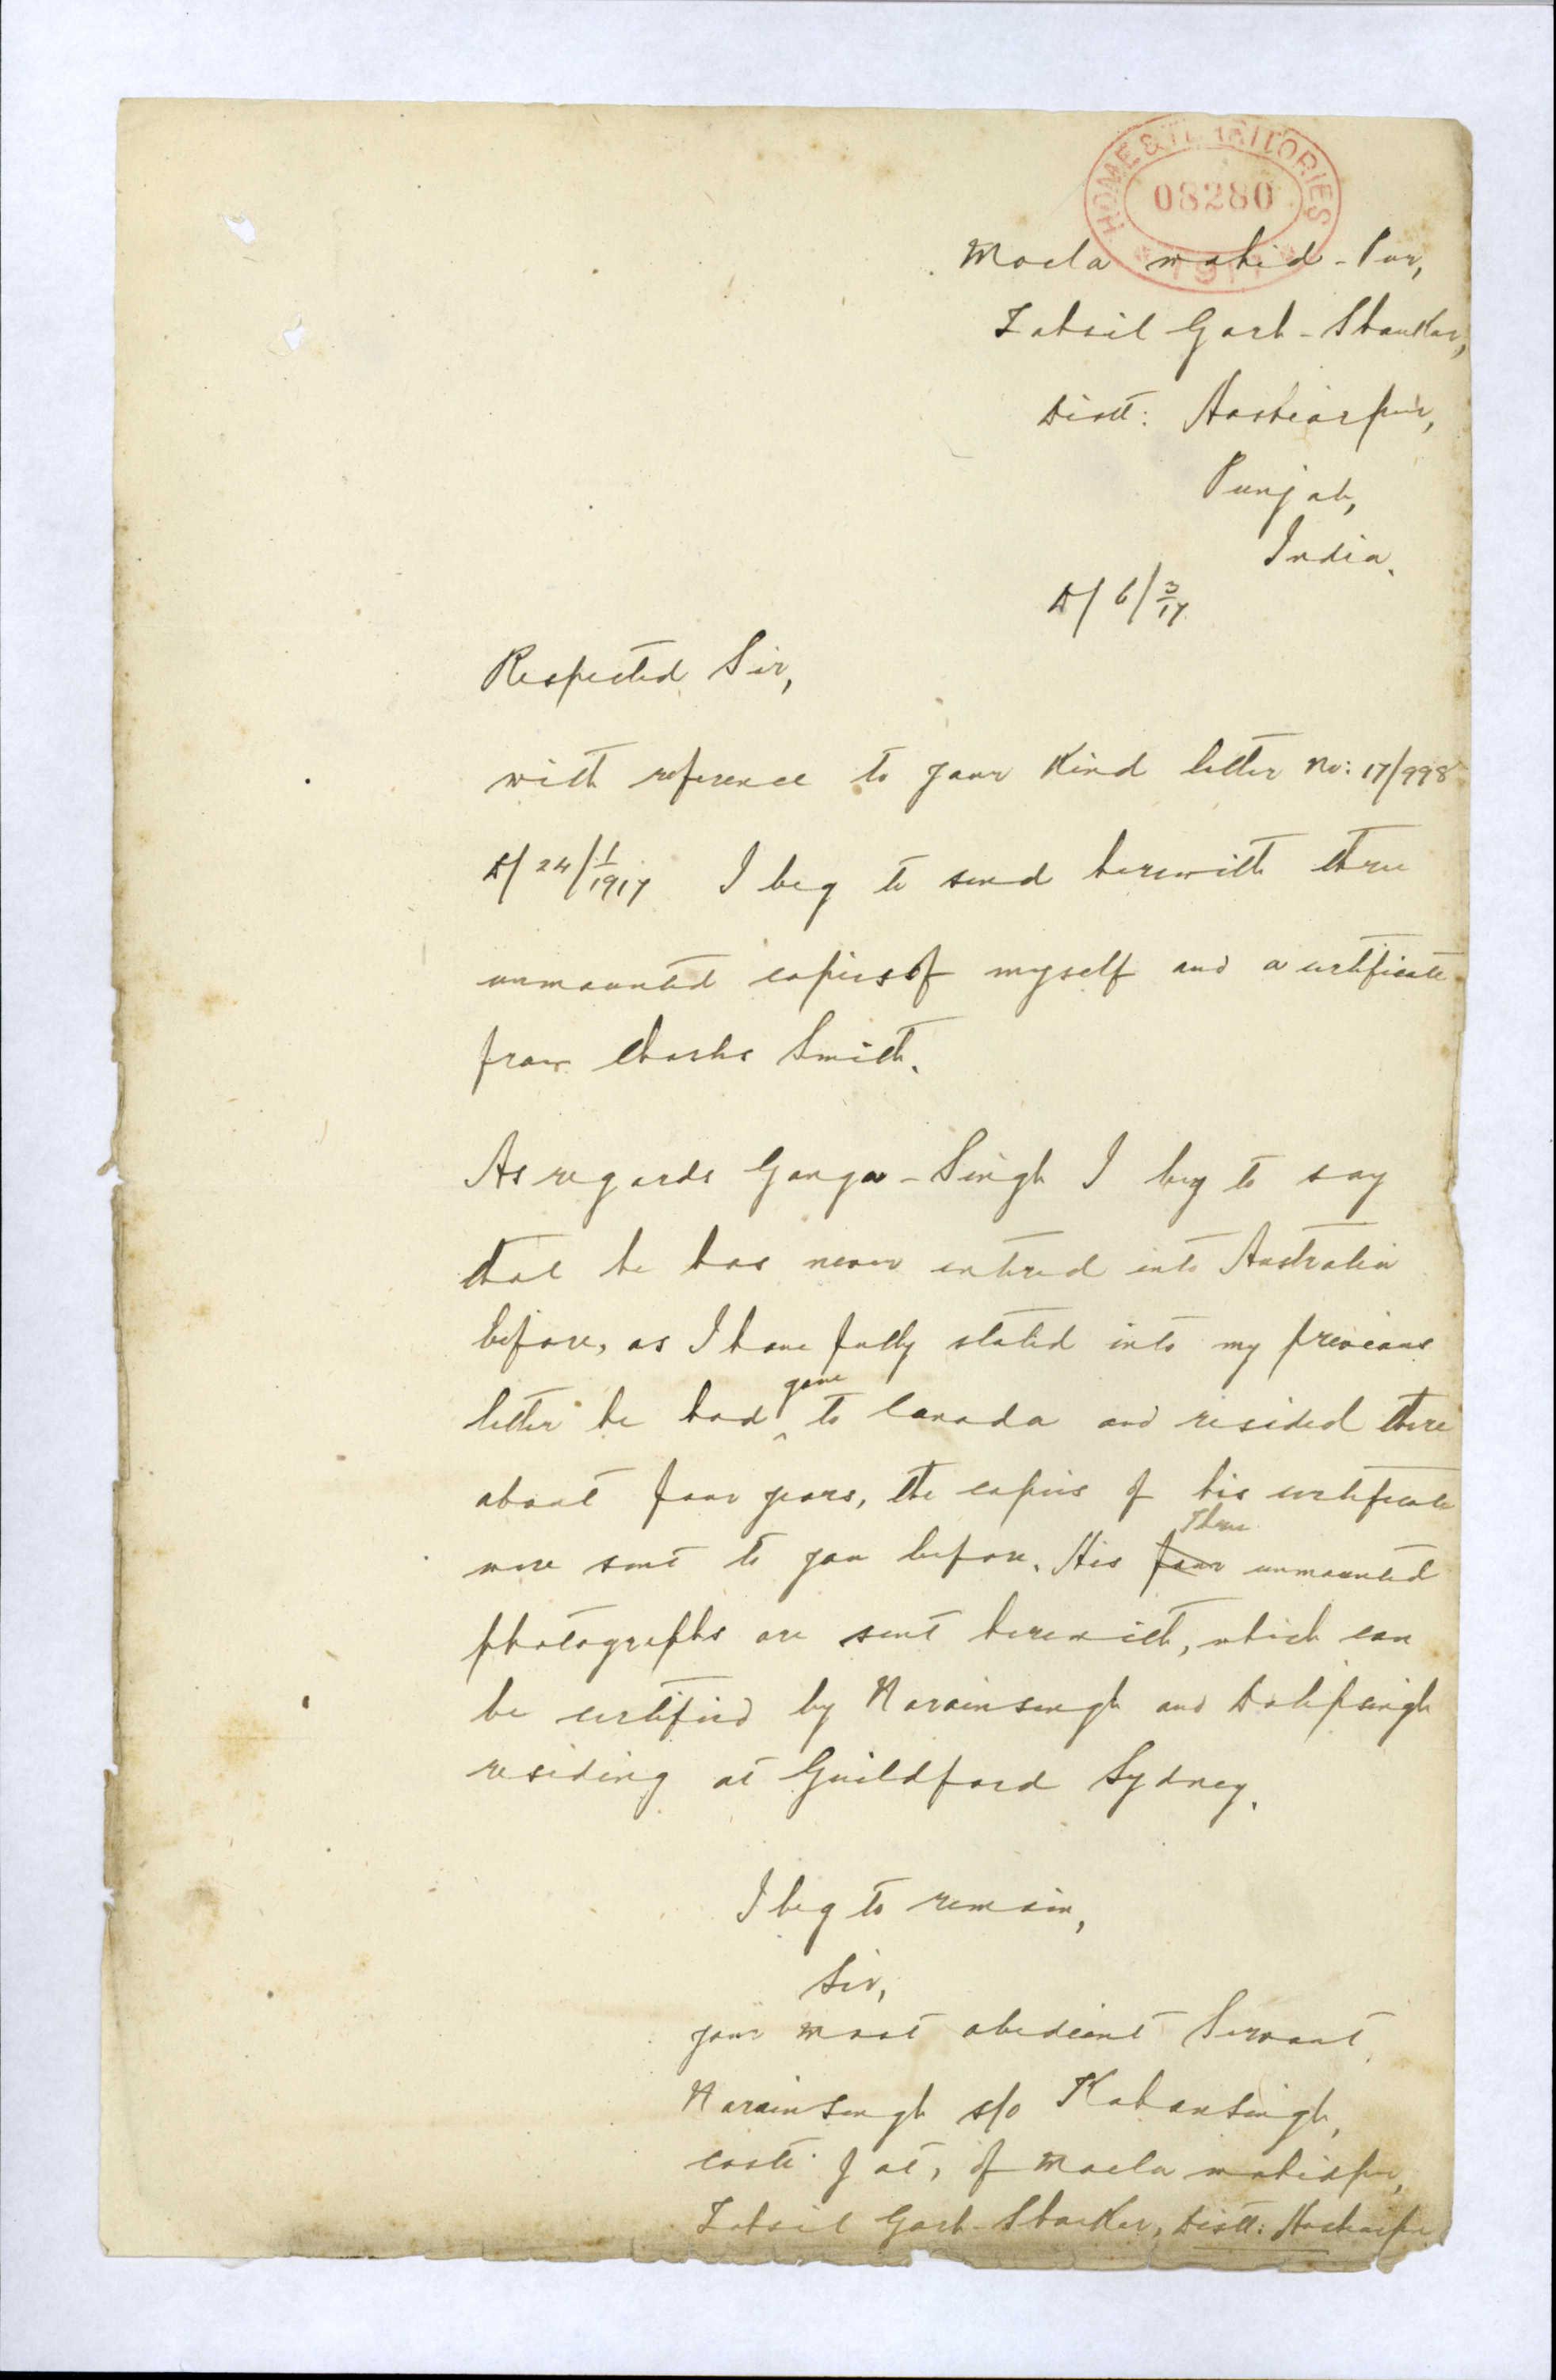 HOME & TERRITORIES
08280
1917
Moela wahid-Pur,
Tahsil Garh-Shankar,
Distt: Hoshiarpur,
Punjab,
India.
D/ 6/3/17.
Respected Sir,
with reference to your kind letter no: 17/998
D/ 24/1/1917 I beg to send herewith three
unmounted copies of myself and a certificate
from Charles Smith.
As regards Ganga-Singh I beg to say
that he has never entered into Australia
before, as I have fully stated into my previous
letter he had gone to Canada and resided there
about four years, the copies of his certificate
were sent to you before. His four Three unmounted
photographs are sent herewith, which can
be certified by Narainsingh and Dalipsingh
residing at Guildford Sydney.
I beg to remain,
Sir,
your most obedient Servant
Narainsingh s/o Kahansingh,
caste Jat, of Moela wahidpur,
Tahsil Garh-Shanker, Distt: Hoshiarpur